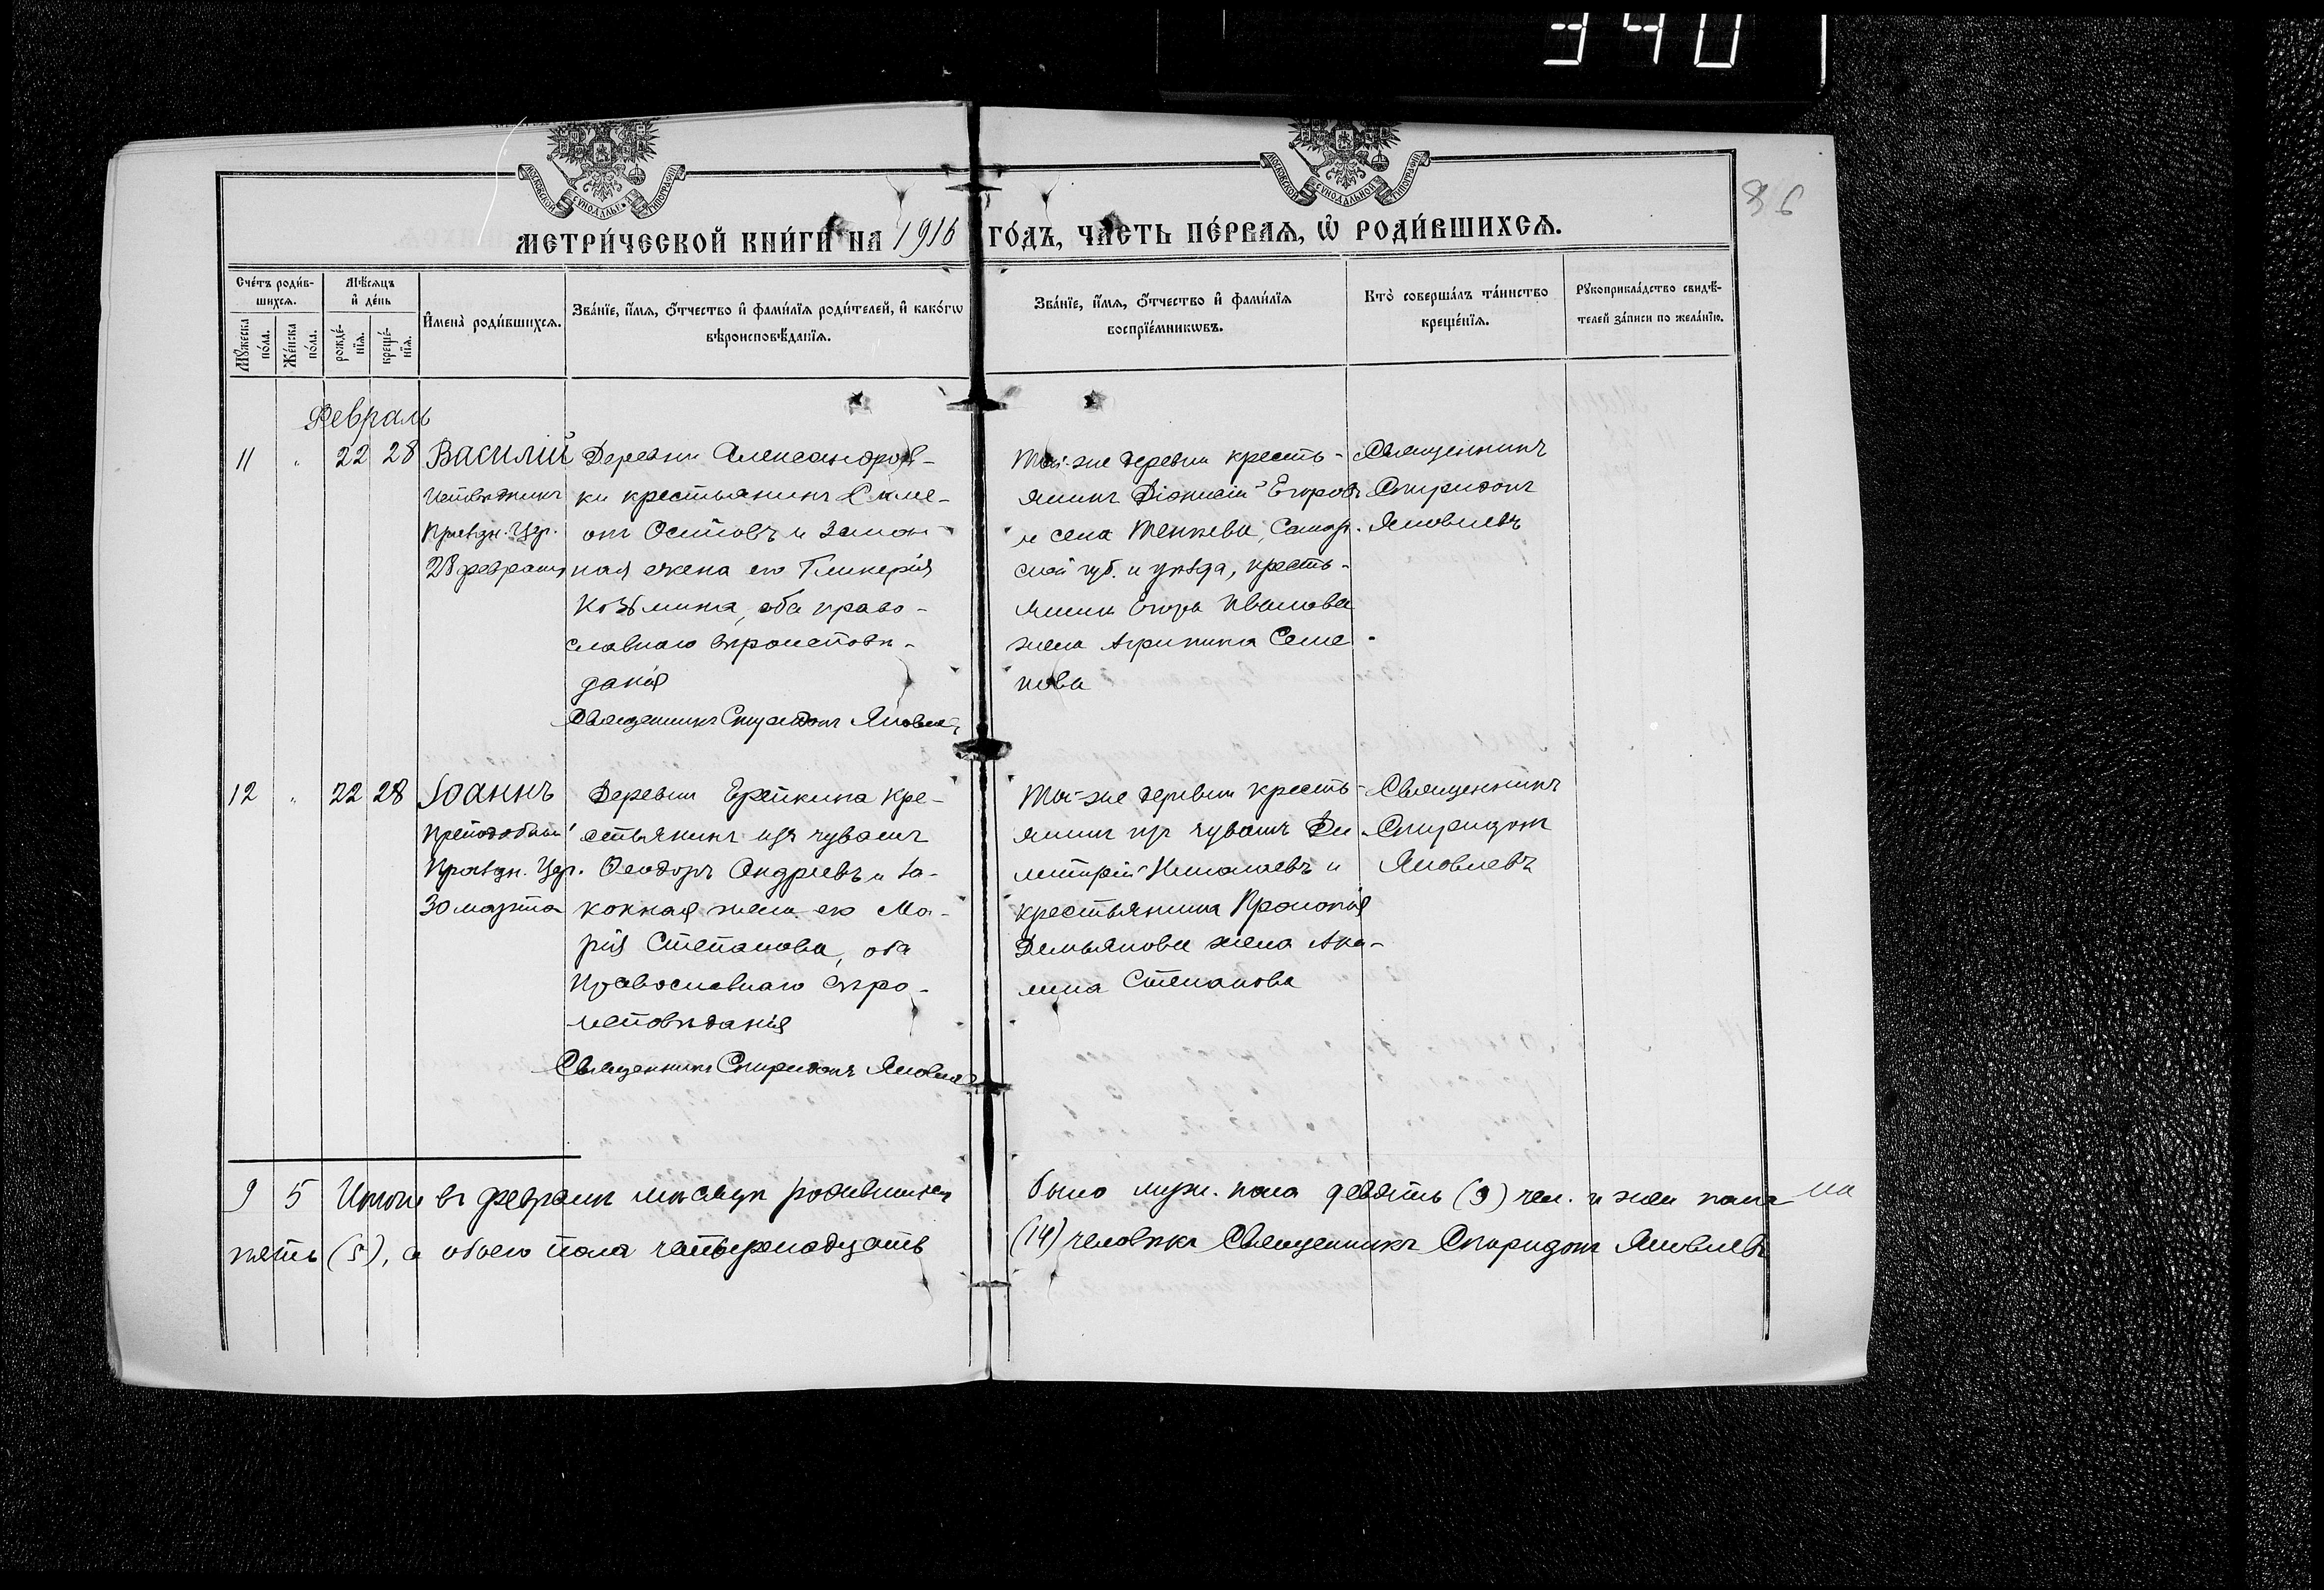 340
86
МОСКОВСКОЙ СѴНОДАЛЬНОЙ ТИПОГРАФІИ
МЕТРИ́ЧЕСКОЙ КНИ́ГИ НА 1916 ГО́ДЪ, ЧА́СТЬ ПЕ́РВАЯ, Ѽ РОДИ́ВШИХСѦ.
Сче́тъ роди́в-
шихсѧ.
Мѣ́сѧцъ
и҆ де́нь
Мꙋ́жеска
по́ла.
Же́нска
по́ла.
рожде́-
нїѧ.
креще́-
нїѧ.
И҆мена̀ роди́вшихсѧ.
Зва́нїе, и҆́мѧ, ѻ҆́тчество и҆ фами́лїѧ роди́телей, и҆ како́гѡ
вѣроисповѣ́данїѧ.
Зва́нїе, и҆́мѧ, ѻ҆́тчество и҆ фами́лїѧ
воспрїе́мникѡвъ.
Кто̀ соверша́лъ та́инство
креще́нїѧ.
Рꙋкоприкла́дство свидѣ́-
телей за́писи по жела́нїю.
Февраль
11 " 22 28
Василій
Исповѣдникъ
Праздн. Цер.
28 февраля
Деревни Александров-
ки крестьянинъ Симе-
онъ Осиповъ и закон-
ная жена его Гликерія
Козьмина, оба право-
славнаго вѣроисповѣ-
данія
Священникъ Спиридонъ Яковлевъ
Той-же деревни кресть-
янинъ Діонисій Егоровъ
и села Тенеева, Самар.
ской губ. и уѣзда, кресть-
янина Егора Иванова
жена Агрипина Семе-
нова
Священникъ
Спиридонъ
Яковлевъ
12 " 22 28
Іоаннъ
Преподобный
Праздн. Цер.
30 марта
Деревни Ерейкина кре-
стьянинъ изъ чувашъ
Ѳеодоръ Андреевъ и за-
конная жена его Ма-
рія Степанова, оба
Православнаго вѣро-
исповѣданія
Священникъ Спиридонъ Яковлевъ
Той-же деревни кресть-
янинъ изъ чувашъ Ди-
митрій Николаевъ и
крестьянина Прокопія
Демьянова жена Аку-
лина Степанова
Священникъ
Спиридонъ
Яковлевъ
9 5 Итого въ февралѣ мѣсяцѣ родившихся было муж. пола девять (9) чел. и жен. пола
пять (5), а обоего пола четырнадцать (14) человѣкъ Священникъ Спиридонъ Яковлевъ